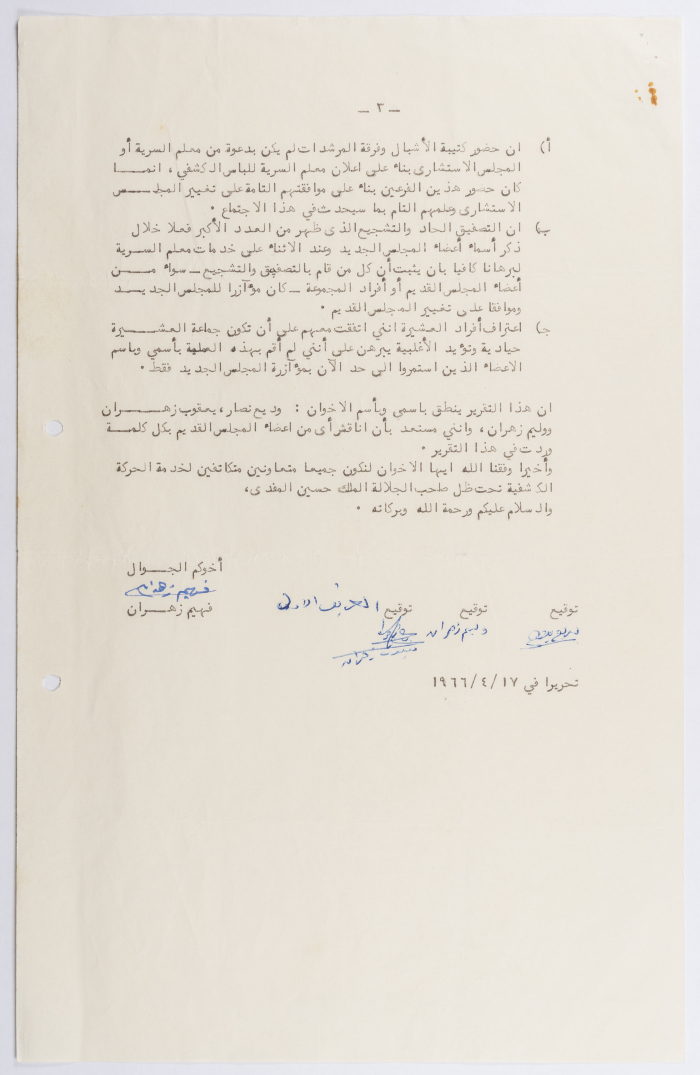 - ٣ -
أ) ان حضور كتيبة الأشبال وفرقة المرشدات لم يكن بدعوة من معلم السرية أو
المجلس الاستشارى بناء على اعلان معلم السرية للباس الكشفي ، انمـــا
كان حضور هذين الفرعين بناء على موافقتهم التامة على تغيير المجلـــس
الاستشارى وعلمهم التام بما سيحدث في هذا الاجتماع .
ب) ان التصفيق الحاد والتشجيع الذى ظهر من العدد الأكبر فعلا خلال
ذكر أسماء أعضاء المجلس الجديد وعند الاثناء على خدمات معلم السرية
لبرهانا كافيا بان يثبت أن كل من قام بالتصفيق والتشجيع ـ سواء مـــن
أعضاء المجلس القديم أو أفراد المجموعة ـ كان مؤآزرا للمجلس الجديـــد
وموافقا على تغيير المجلس القديم .
ج) اعتراف أفراد العشيرة انني اتفقت معهم على أن تكون جماعة العشـــيرة
حيادية وتؤيد الأغلبية يبرهن على أنني لم أقم بهذه العملية بأسمي وبأسم
الاعضاء الذين استمروا الى حد الآن بمؤآزرة المجلس الجديد فقط .
ان هذا التقرير ينطق باسمى وبأسم الاخوان : وديع نصار ، يعقوب زهـــران
ووليم زهران ، وانني مستعد بأن اناقش أى من اعضاء المجلس القديم بكل كلمـــة
وردت في هذا التقرير .
وأخيرا وفقنا الله ايها الاخوان لنكون جميعا متعاونين متكاتفين لخدمة الحركة
الكشفية تحت ظل صاحب الجلالة الملك حسين المفدى ،
والسلام عليكم ورحمة الله وبركاته .
أخوكم الجـــوال
فهيم زهران
فهيم زهـــران
توقيع توقيع توقيع
وليم زهران
يعقوب زهران
تحريرا في ١٧/ ٤/ ١٩٦٦